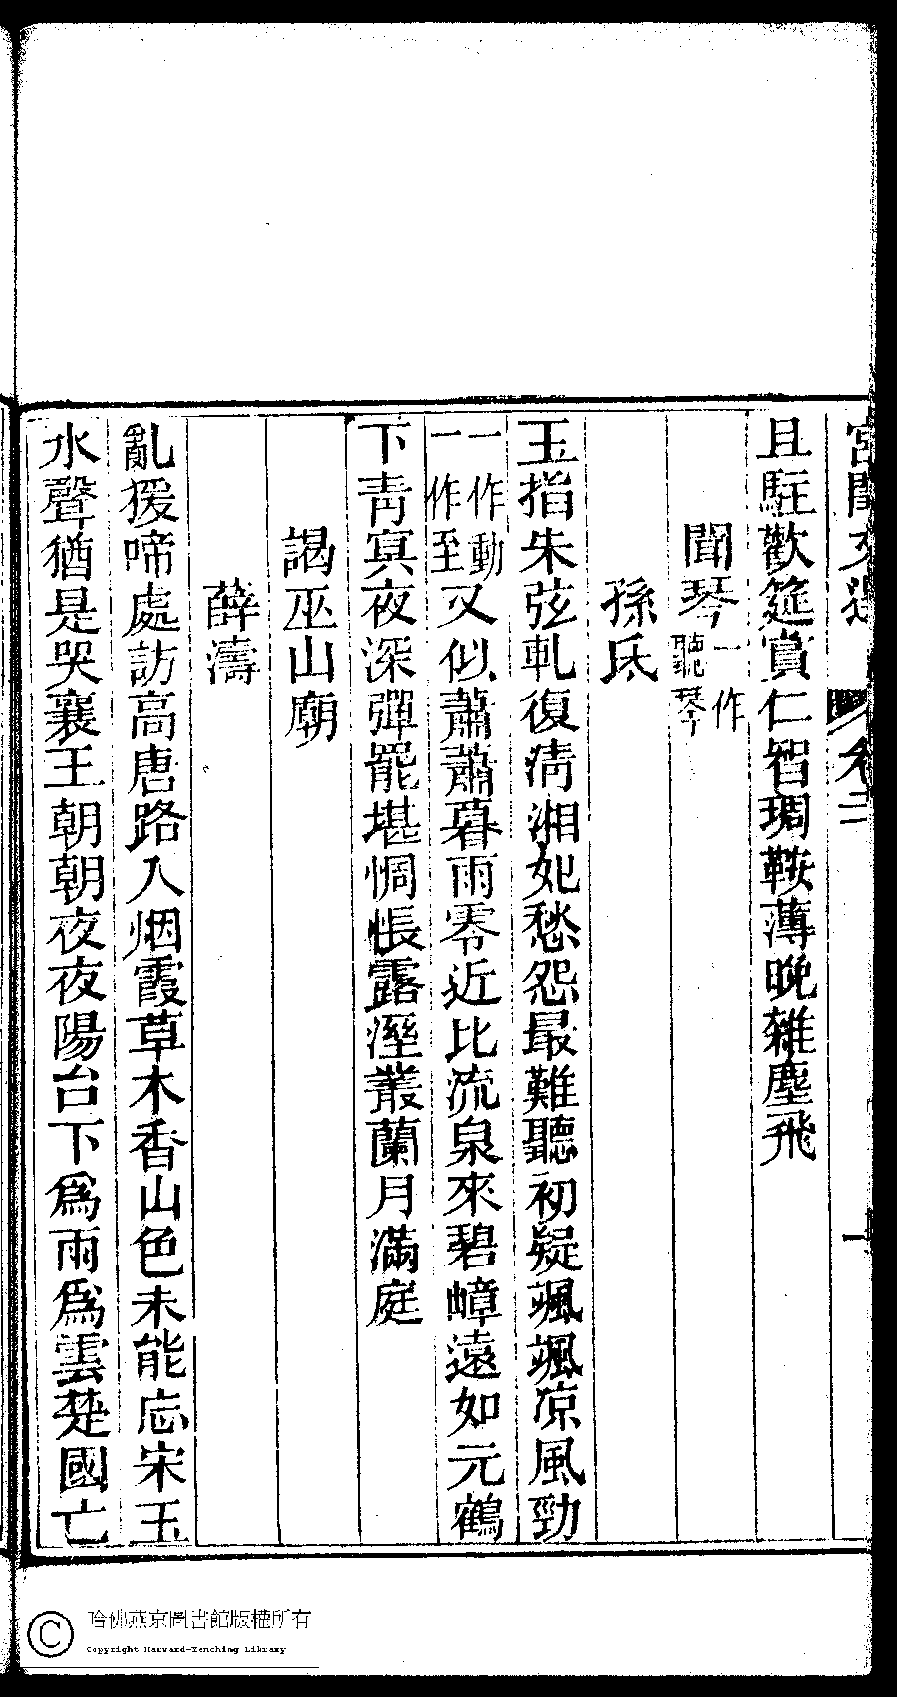 宮閨文選 卷二 一
且駐歡筵賞仁智琱鞍薄晚雜塵飛
聞琴一作聽琴
孫氏
玉指朱弦軋復清湘妃愁怨最難聽初疑颯颯凉風勁
一作動一作至又似蕭蕭暮雨零近比流泉來碧嶂遠如元鶴
下青冥夜深彈罷堪惆悵露溼叢蘭月滿庭
謁巫山廟
薛濤
亂猨啼處訪高唐路入烟霞草木香山色未能忘宋玉
水聲猶是哭襄王朝朝夜夜陽台下爲雨爲雲楚國亡
哈佛燕京圖書館版權所有
Copyright Harvard-Yenching Library